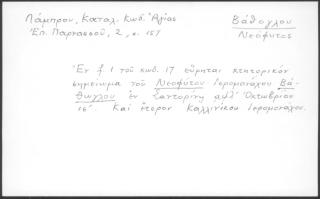 Λάμπρου, Καταλ. Κωδ. Ἁγίας
Ἐπ. Παρνασσοῦ, 2, σ. 157
Βάθογλου
Νεόφυτος
Ἐν f. 1 τοῦ κωδ. 17 εὕρηται κτητορικὸν
σημείωμα τοῦ Νεοφύτου Ἱερομονάχου Βά-
θωγλου ἐν Σαντορίνῃ Ὀκτωβρίου
16 Καὶ ἕτερον Καλλινίκου Ἱερομονάχου.